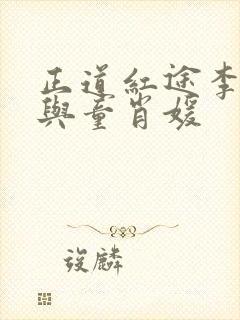 正道紅途李
與童肖媛
後麟